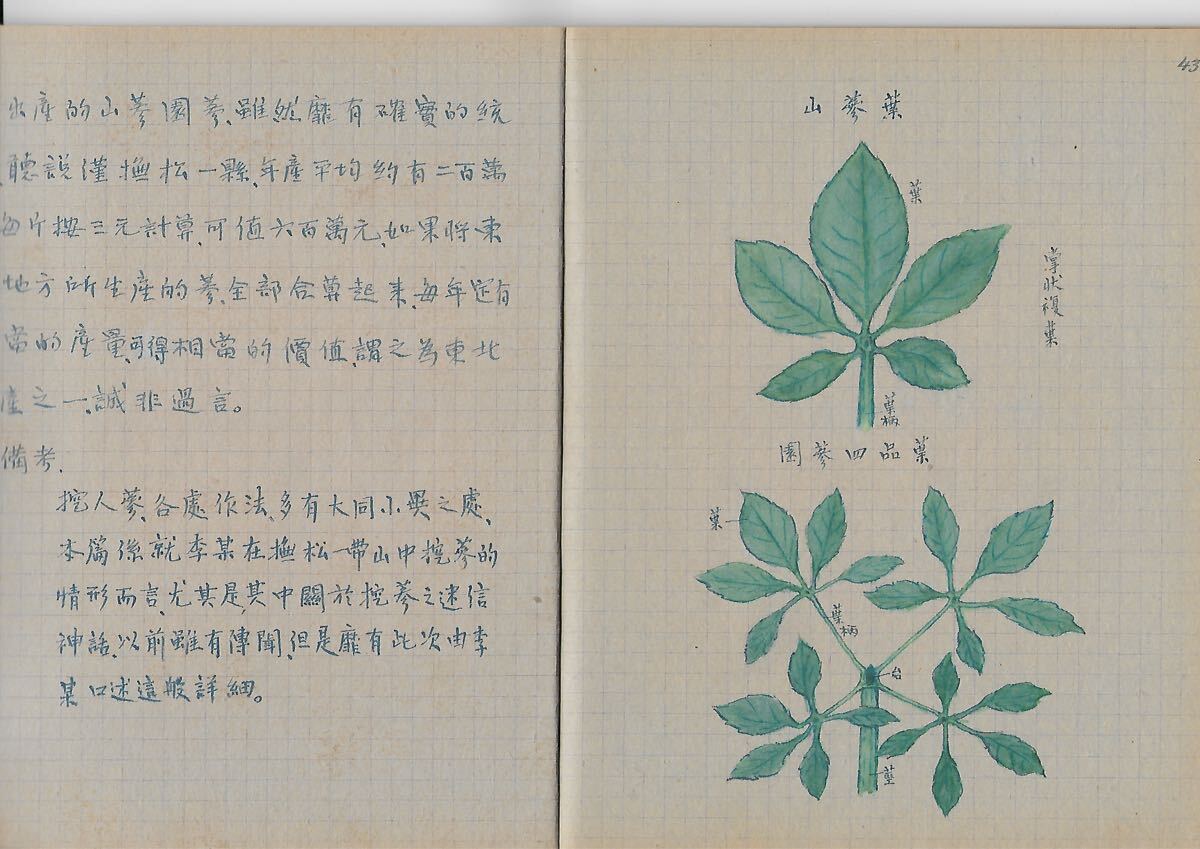 出產的山蔘園蔘、雖然靡有確實的統
聽說謹撫松一縣、年產平均約有二百萬
每斤按三元計算、可值六百萬元、如果將東
地方所生產的蔘、全部合算起来、每年定有
當的產量、可得相當的價值、謂之為東北
產之一、誠非過言。
備考.
挖人蔘、各處作法、多有大同小異之處、
本篇係就李某在撫松一帶山中挖蔘的
情形而言、尤其是、其中關於挖蔘之迷信
神話、以前雖有傳聞、但是靡有此次由李
某口述這般詳細。
43
山蔘葉
葉
掌狀複葉
葉柄
園蔘四品葉
葉
葉柄
台
莖